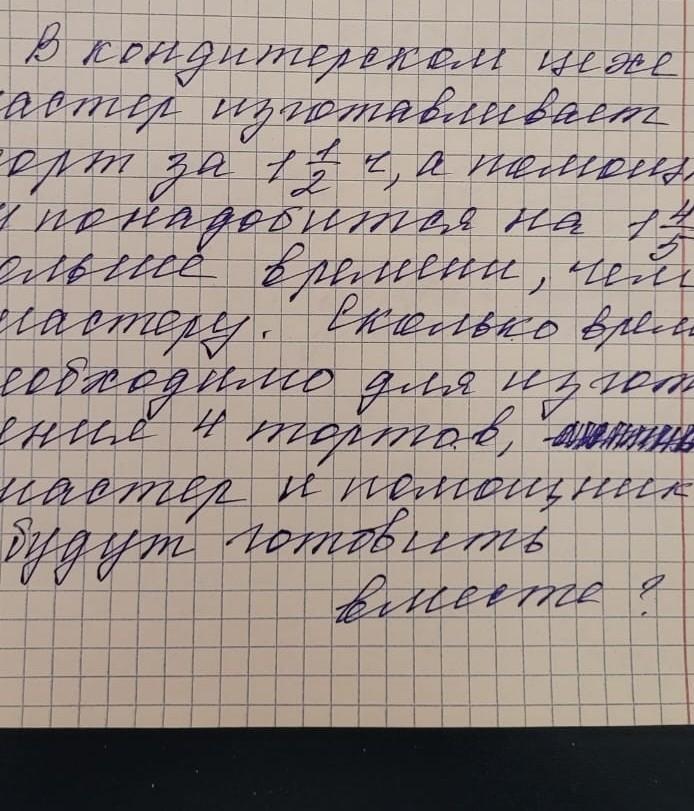 В кондитерском цехе
астер изготавливает
орт за 1 1/2 ч, а помощ
и понадобится на 1 4/5
ольше времени, чем
мастеру. Сколько врем
еобходимо для изгот
ения 4 тортов,
мастер и помощник
будут готовить
вместе?